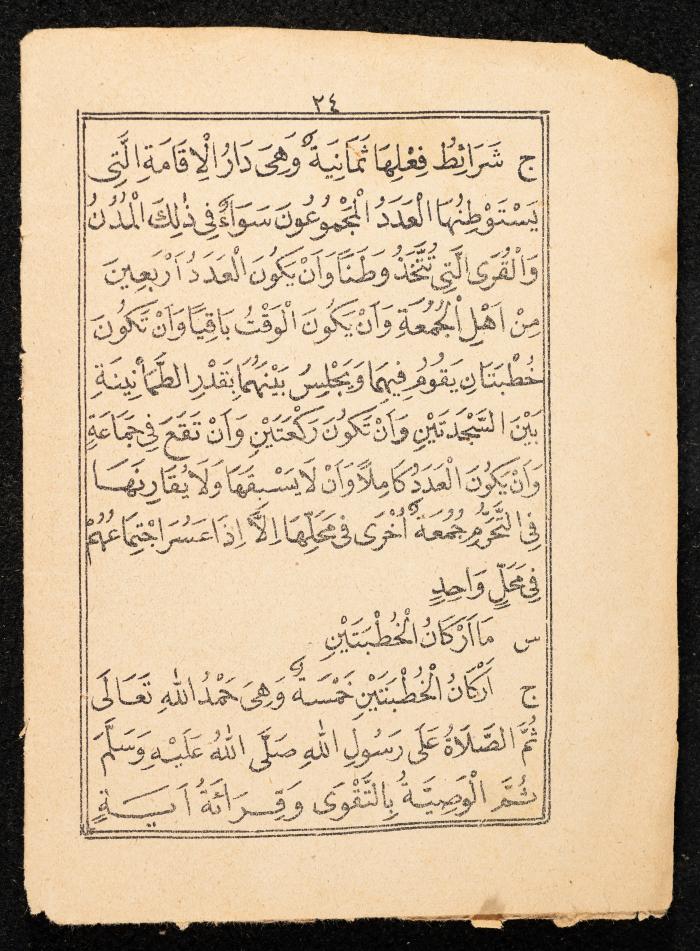 ٢٤
ج شَرَائِطُ فِعْلِهَا ثَمَانِيَةٌ وَهِىَ دَارُ الْاِقَامَةِ الَّتِى
يَسْتَوْطِنُهَا الْعَدَدُ الْمَجْمُوعُونَ سَوَاءٌ فِى ذٰلِكَ الْمُدُنُ
وَالْقُرَى الَّتِى تُتَّخَذُ وَطَنًا وَاَنْ يَكُونَ الْعَدَدُ اَرْبَعِينَ
مِنْ اَهْلِ الْجُمُعَةِ وَاَنْ يَكُونَ الْوَقْتُ بَاقِيًا وَاَنْ تَكُونَ
خُطْبَتَانِ يَقُومُ فِيهِمَا وَيَجْلِسُ بَيْنَهُمَا بِقَدْرِ الطُّمَأْنِينَةِ
بَيْنَ السَّجْدَتَيْنِ وَاَنْ تَكُونَ رَكْعَتَيْنِ وَاَنْ تَقَعَ فِى جَمَاعَةٍ
وَاَنْ يَكُونَ الْعَدَدُ كَامِلًا وَاَنْ لَا يَسْبِقَهَا وَلَا يُقَارِنَهَا
فِى التَّحَرُّمِ جُمُعَةٌ اُخْرَى فِى مَحَلِّهَا اِلَّا اِذَا عَسُرَ اجْتِمَاعُهُمْ
فِى مَحَلٍّ وَاحِدٍ
س مَا اَرْكَانُ الْخُطْبَتَيْنِ
ج اَرْكَانُ الْخُطْبَتَيْنِ خَمْسَةٌ وَهِىَ حَمْدُ اللهِ تَعَالَى
ثُمَّ الصَّلَاةُ عَلَى رَسُولِ اللهِ صَلَّى اللهُ عَلَيْهِ وَسَلَّمَ
ثُمَّ الْوَصِيَّةُ بِالتَّقْوَى وَقِرَائَةُ اَيَةٍ